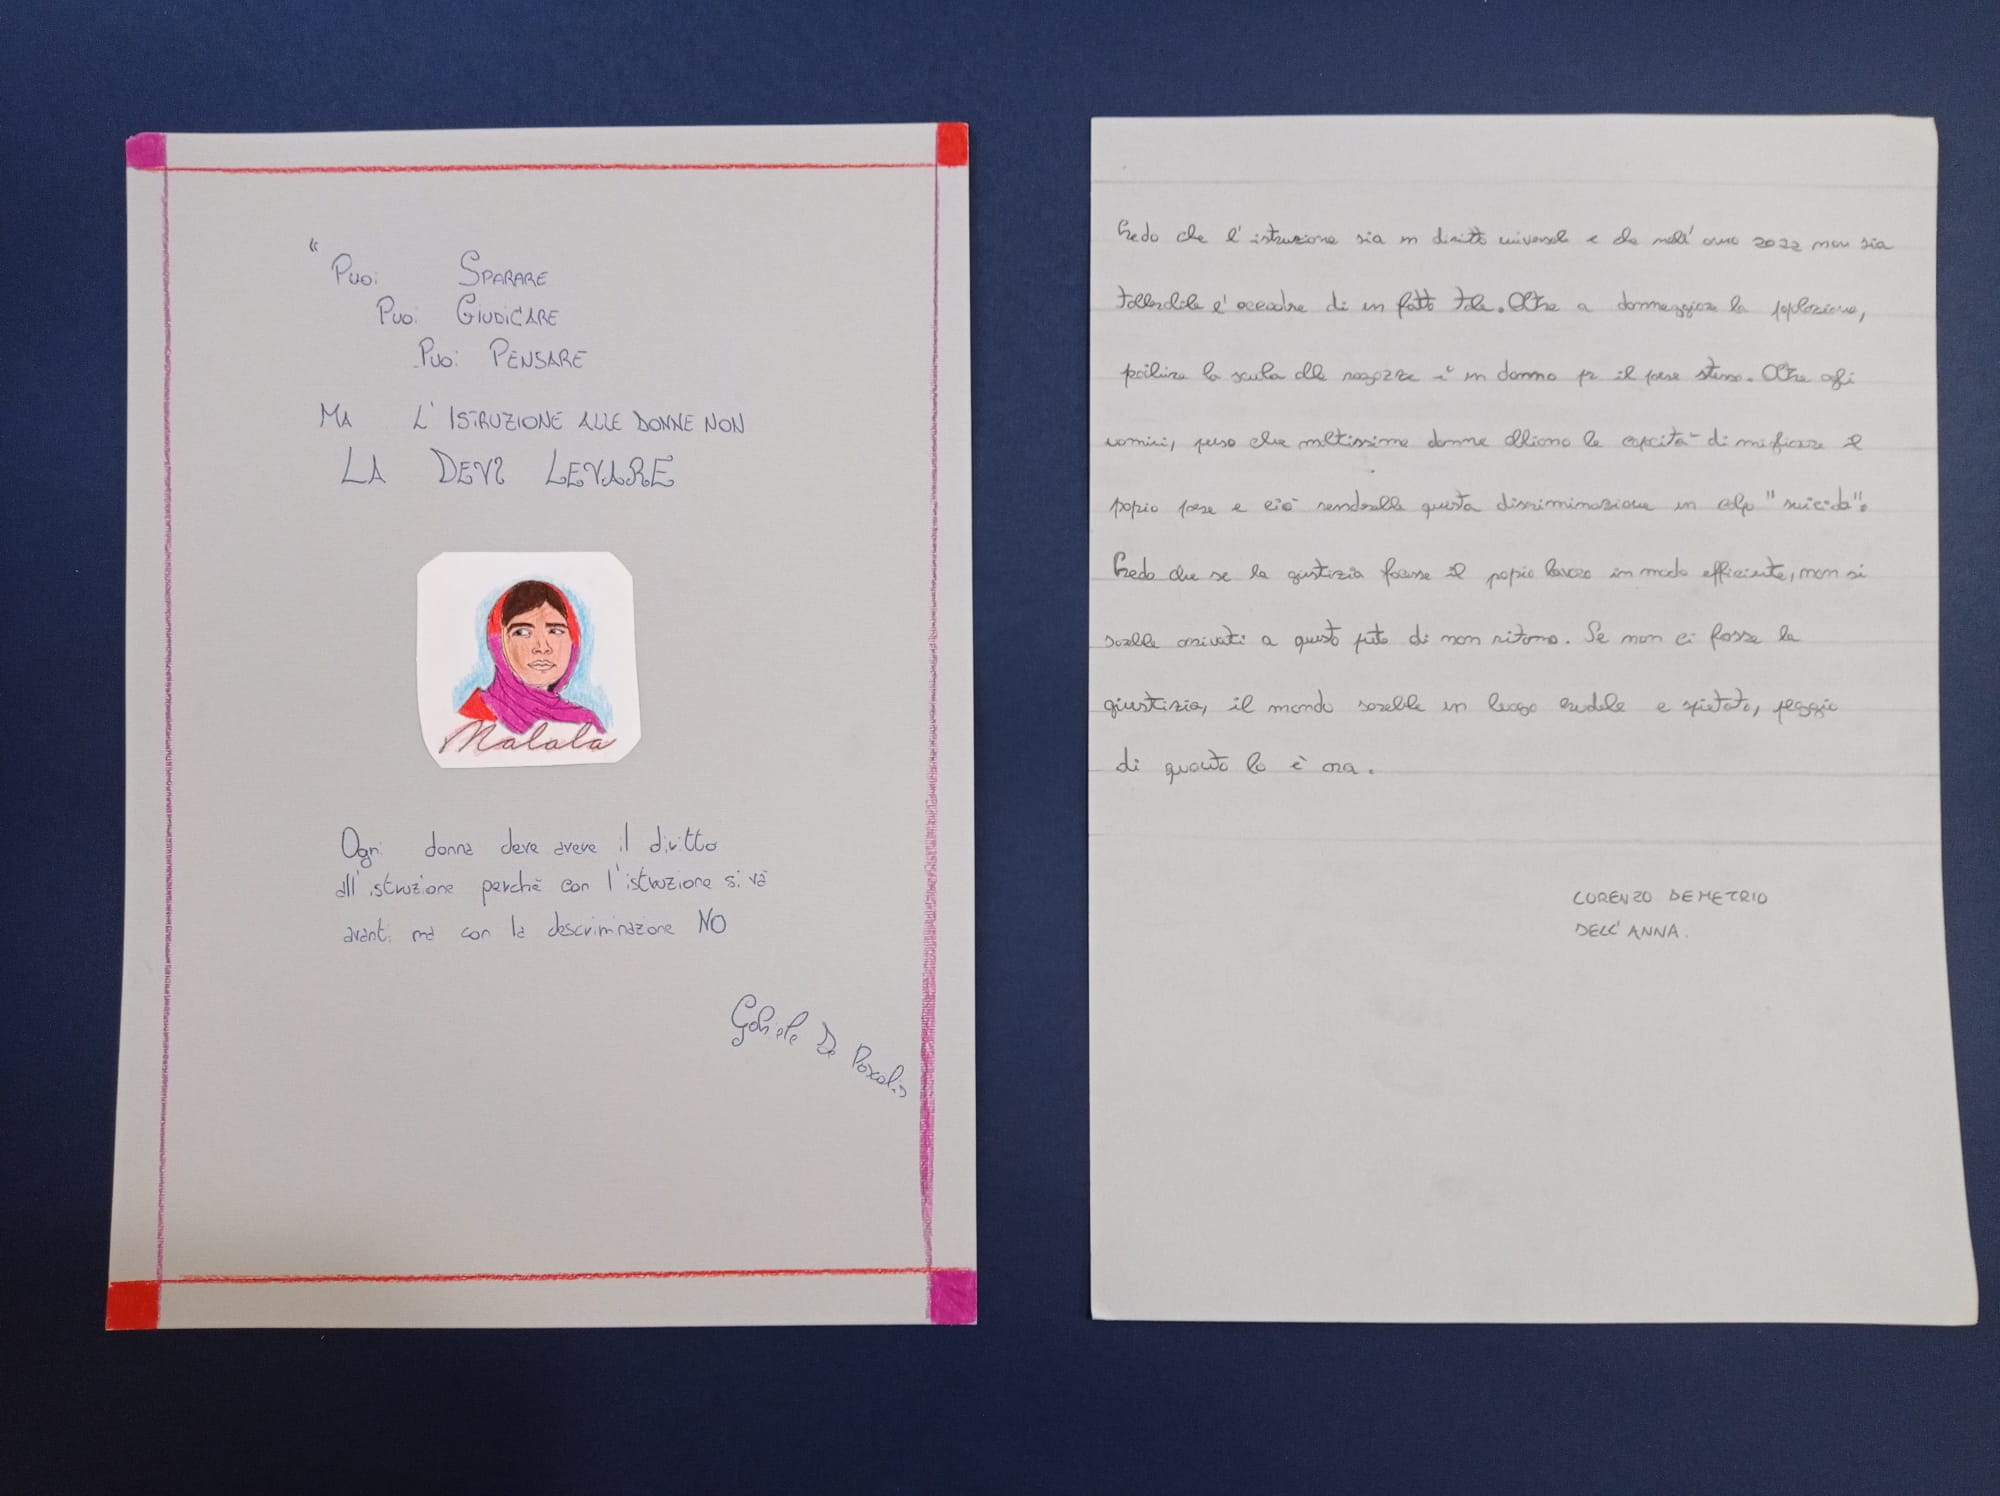 "Puoi Sparare
Puoi Giudicare
Puoi Pensare
Ma l'istruzione alle donne non
La Devi Levare
Malala
Ogni donna deve avere il diritto
all'istruzione perchè con l'istruzione si và
avanti ma con la descriminazione NO
Gabriele De Pascalis
Credo che l'istruzione sia un diritto universale e che nell'anno 2022 non sia
tollerabile l'accadere di un fatto tale. Oltre a danneggiare la popolazione,
proibire la scuola alle ragazze è un danno per il paese stesso. Oltre agli
uomini, penso che moltissime donne abbiano la capacità di migliorare il
propio paese e ciò renderebbe questa discriminazione un colpo "suicida".
Credo che se la giustizia facesse il propio lavoro in modo efficiente, non si
sarebbe arrivati a questo punto di non ritorno. Se non ci fosse la
giustizia, il mondo sarebbe un luogo crudele e spietato, peggio
di quanto lo è ora.
LORENZO DEMETRIO
DELL'ANNA.